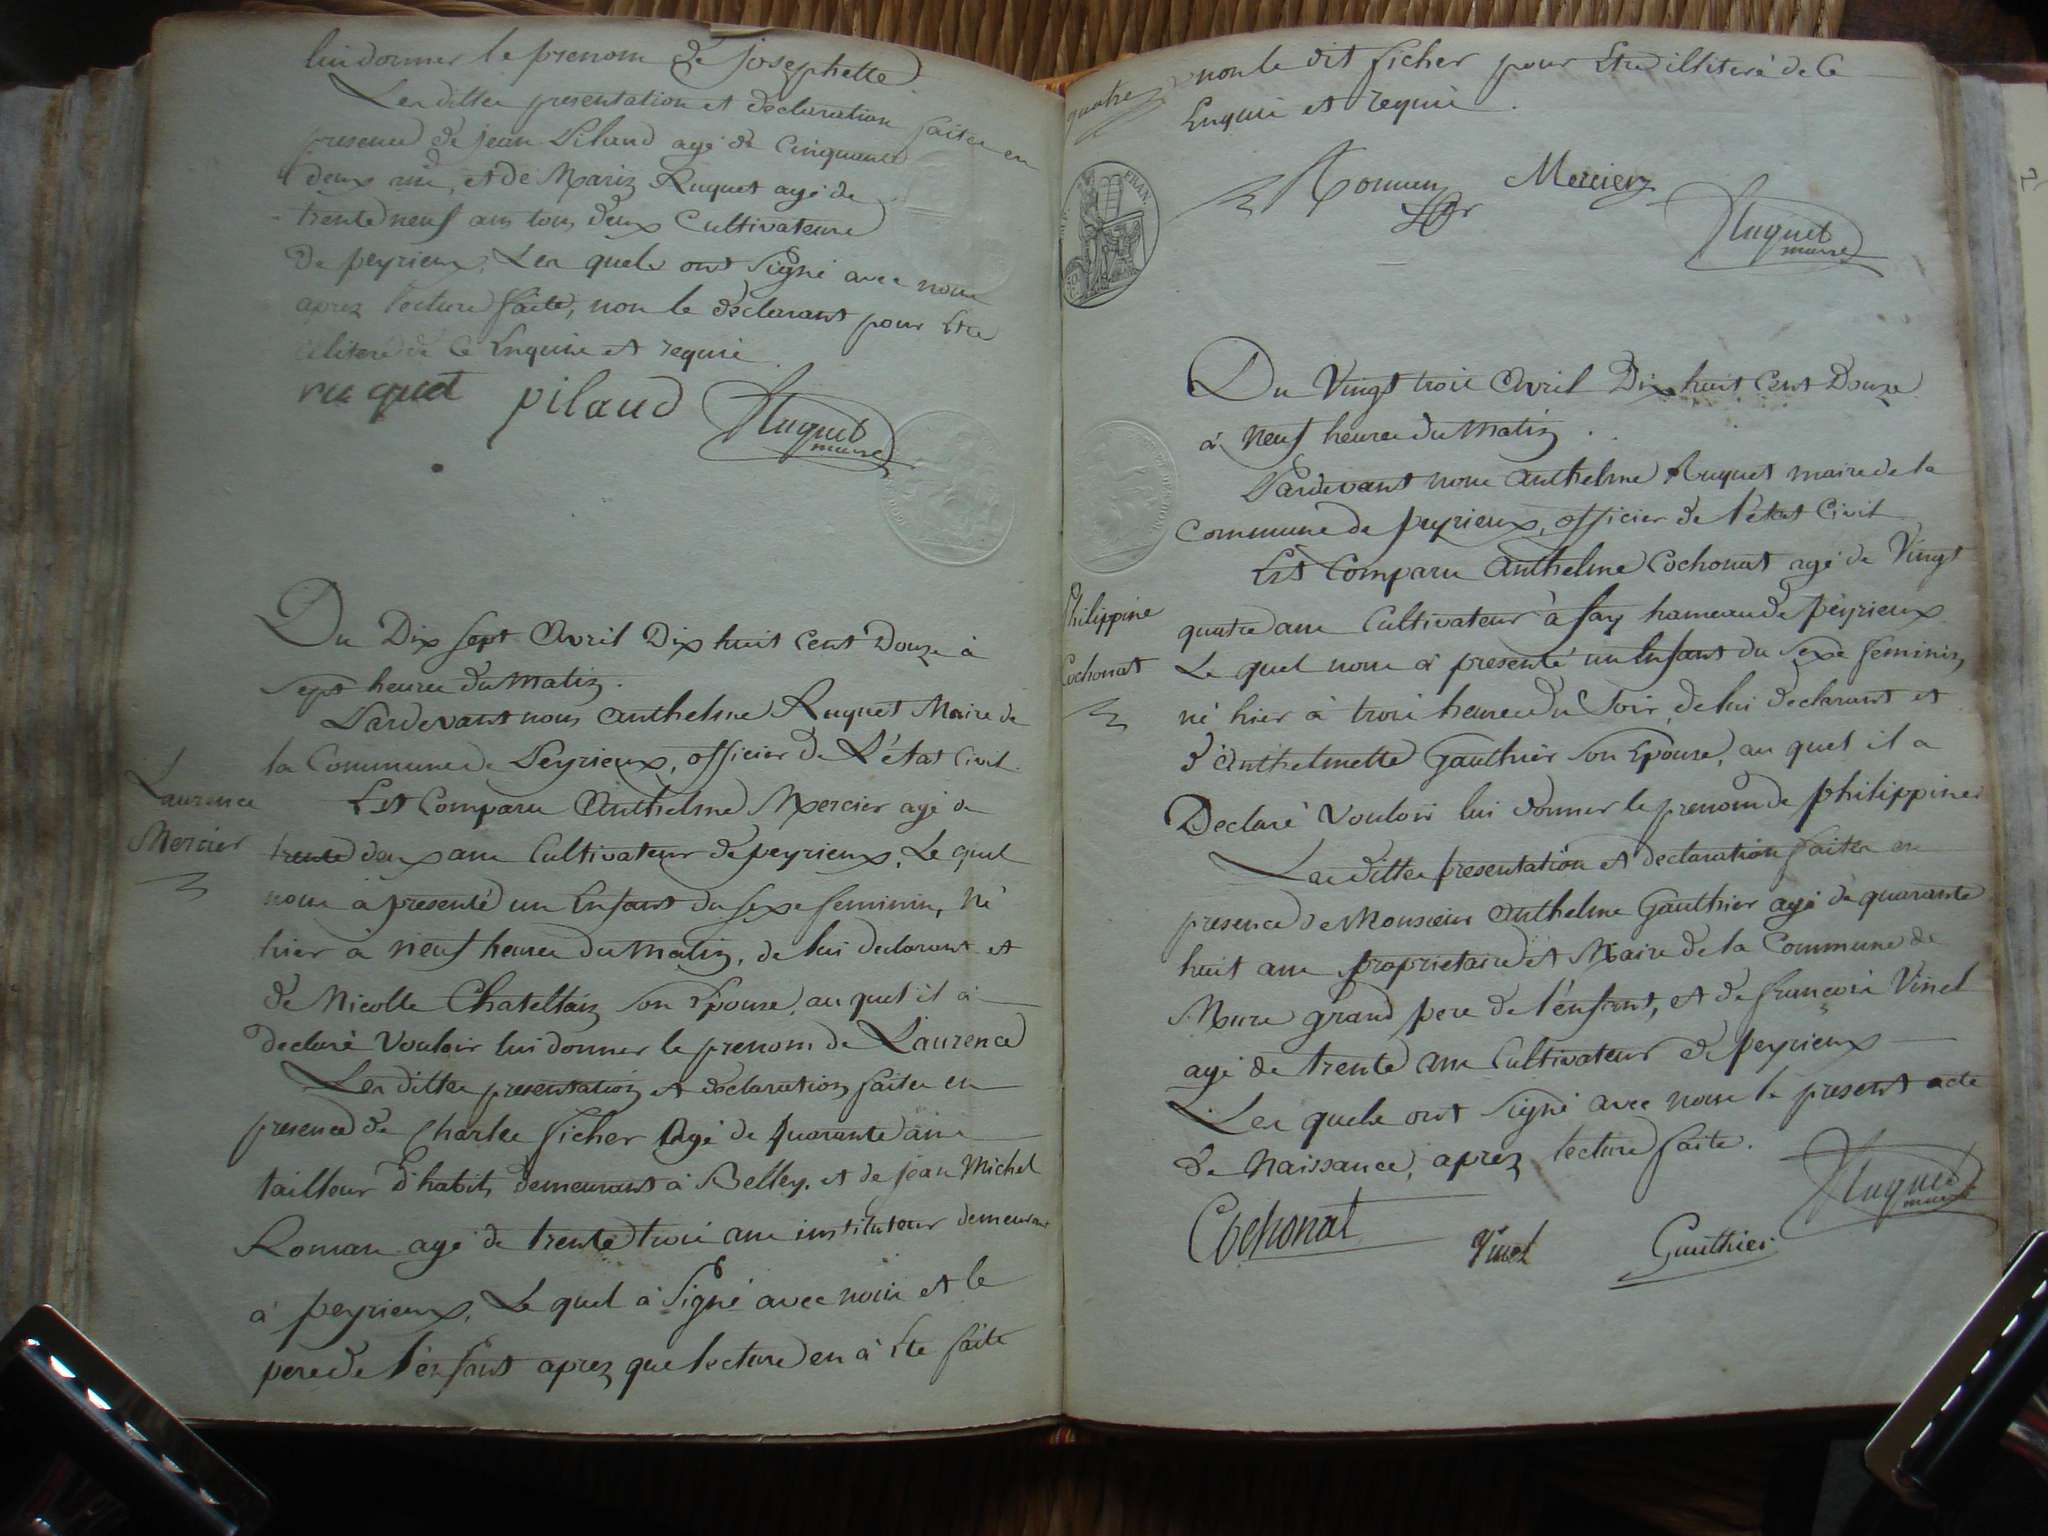 lui donner le prenom de josephette
Les dittes presentation et declaration faites en
presence de jean Pilaud agé de Cinquante
deux ans, et de Marin Ruquet agé de
trente neuf ans tous deux Cultivateurs
de peyrieux, Les quels ont signé avec nous
aprez lecture faite, non le declarant pour Etre
illiteré de ce Enquis et requis
ruquet pilaud Ruquet
maire
Du Dix sept Avril Dix huit Cent Douze à
sept heures du matin.
Pardevant nous Anthelme Ruquet Maire de
la Commune de Peyrieux, officier de L'état Civil.
Est Comparu Anthelme Mercier agé de
Laurence
Mercier
trente deux ans Cultivateur de peyrieux, Le quel
nous à presenté un Enfant du sexe feminin, né
hier à neuf heures du matin, de lui declarant et
de Nicolle Chatellain son Epouse, au quel il à
declaré Vouloir lui donner le prenom de Laurence
Les dittes presentation et declaration faites en
presence de Charles ficher Agé de Quarante ans
tailleur d'habits demeurant à Belley, et de jean Michel
Roman agé de trente trois ans instituteur demeurant
à peyrieux, Le quel à signé avec nous et le
pere de l'enfant aprez que lecture en à Ete faite
quatre
non le dit ficher pour Etre illiteré de Ce
Enquis et requis.
FRAN.
Roman Mercier
Ruquet
maire
Du Vingt trois Avril Dix huit Cent Douze
à Neuf heures du Matin.
Pardevant nous Anthelme Ruquet maire de la
Commune de peyrieux, officier de l'état Civil
Est Comparu Anthelme Cochonat agé de Vingt
Philippine
Cochonat
quatre ans Cultivateur à fay hameau de peyrieux
Le quel nous à presenté un Enfant du sexe feminin,
né hier à trois heures du Soir, de lui declarant et
d'Anthelmette Gauthier son Epouse, au quel il a
Declaré Vouloir lui donner le prenom de philippine
Les dittes presentation et declaration faites en
presence de Monsieur Anthelme Gauthier agé de quarante
huit ans proprietaire et Maire de la Commune de
Mure grand pere de l'enfant, et de françois Vinet
agé de trente ans Cultivateur de peyrieux
Les quels ont signé avec nous le present acte
de Naissance, aprez lecture faite.
Cochonat Vinet Gauthier Ruquet
maire